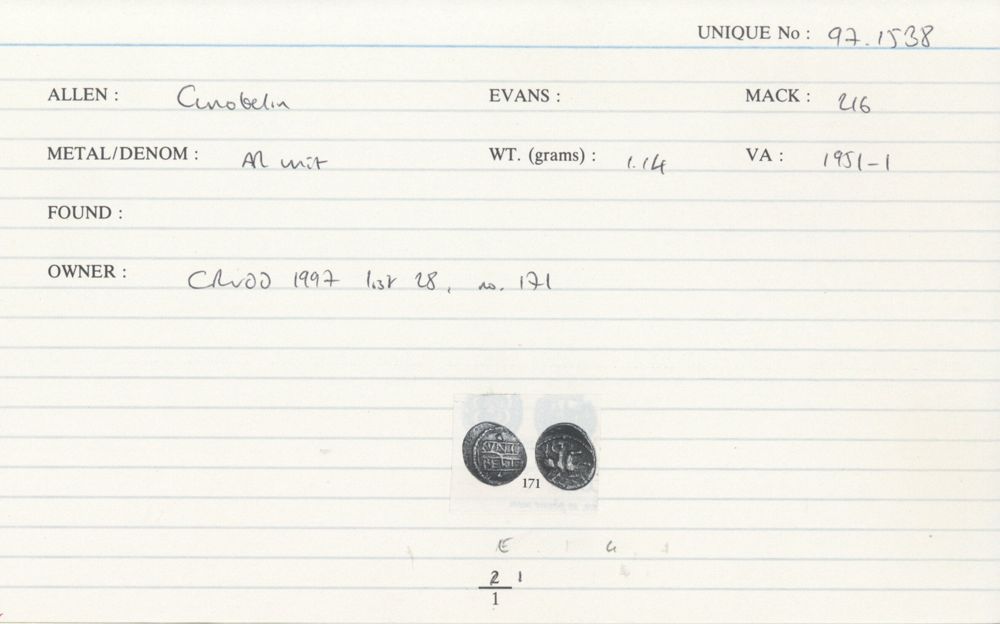 UNIQUE No : 97.1538
ALLEN : Cunobelin EVANS : MACK : 216
METAL/DENOM : AR unit WT. (grams) : 1.14 VA : 1951-1
FOUND :
OWNER : CRUDD 1997 list 28, no. 171
CVNO
BELI
171
E 4
2 1
1